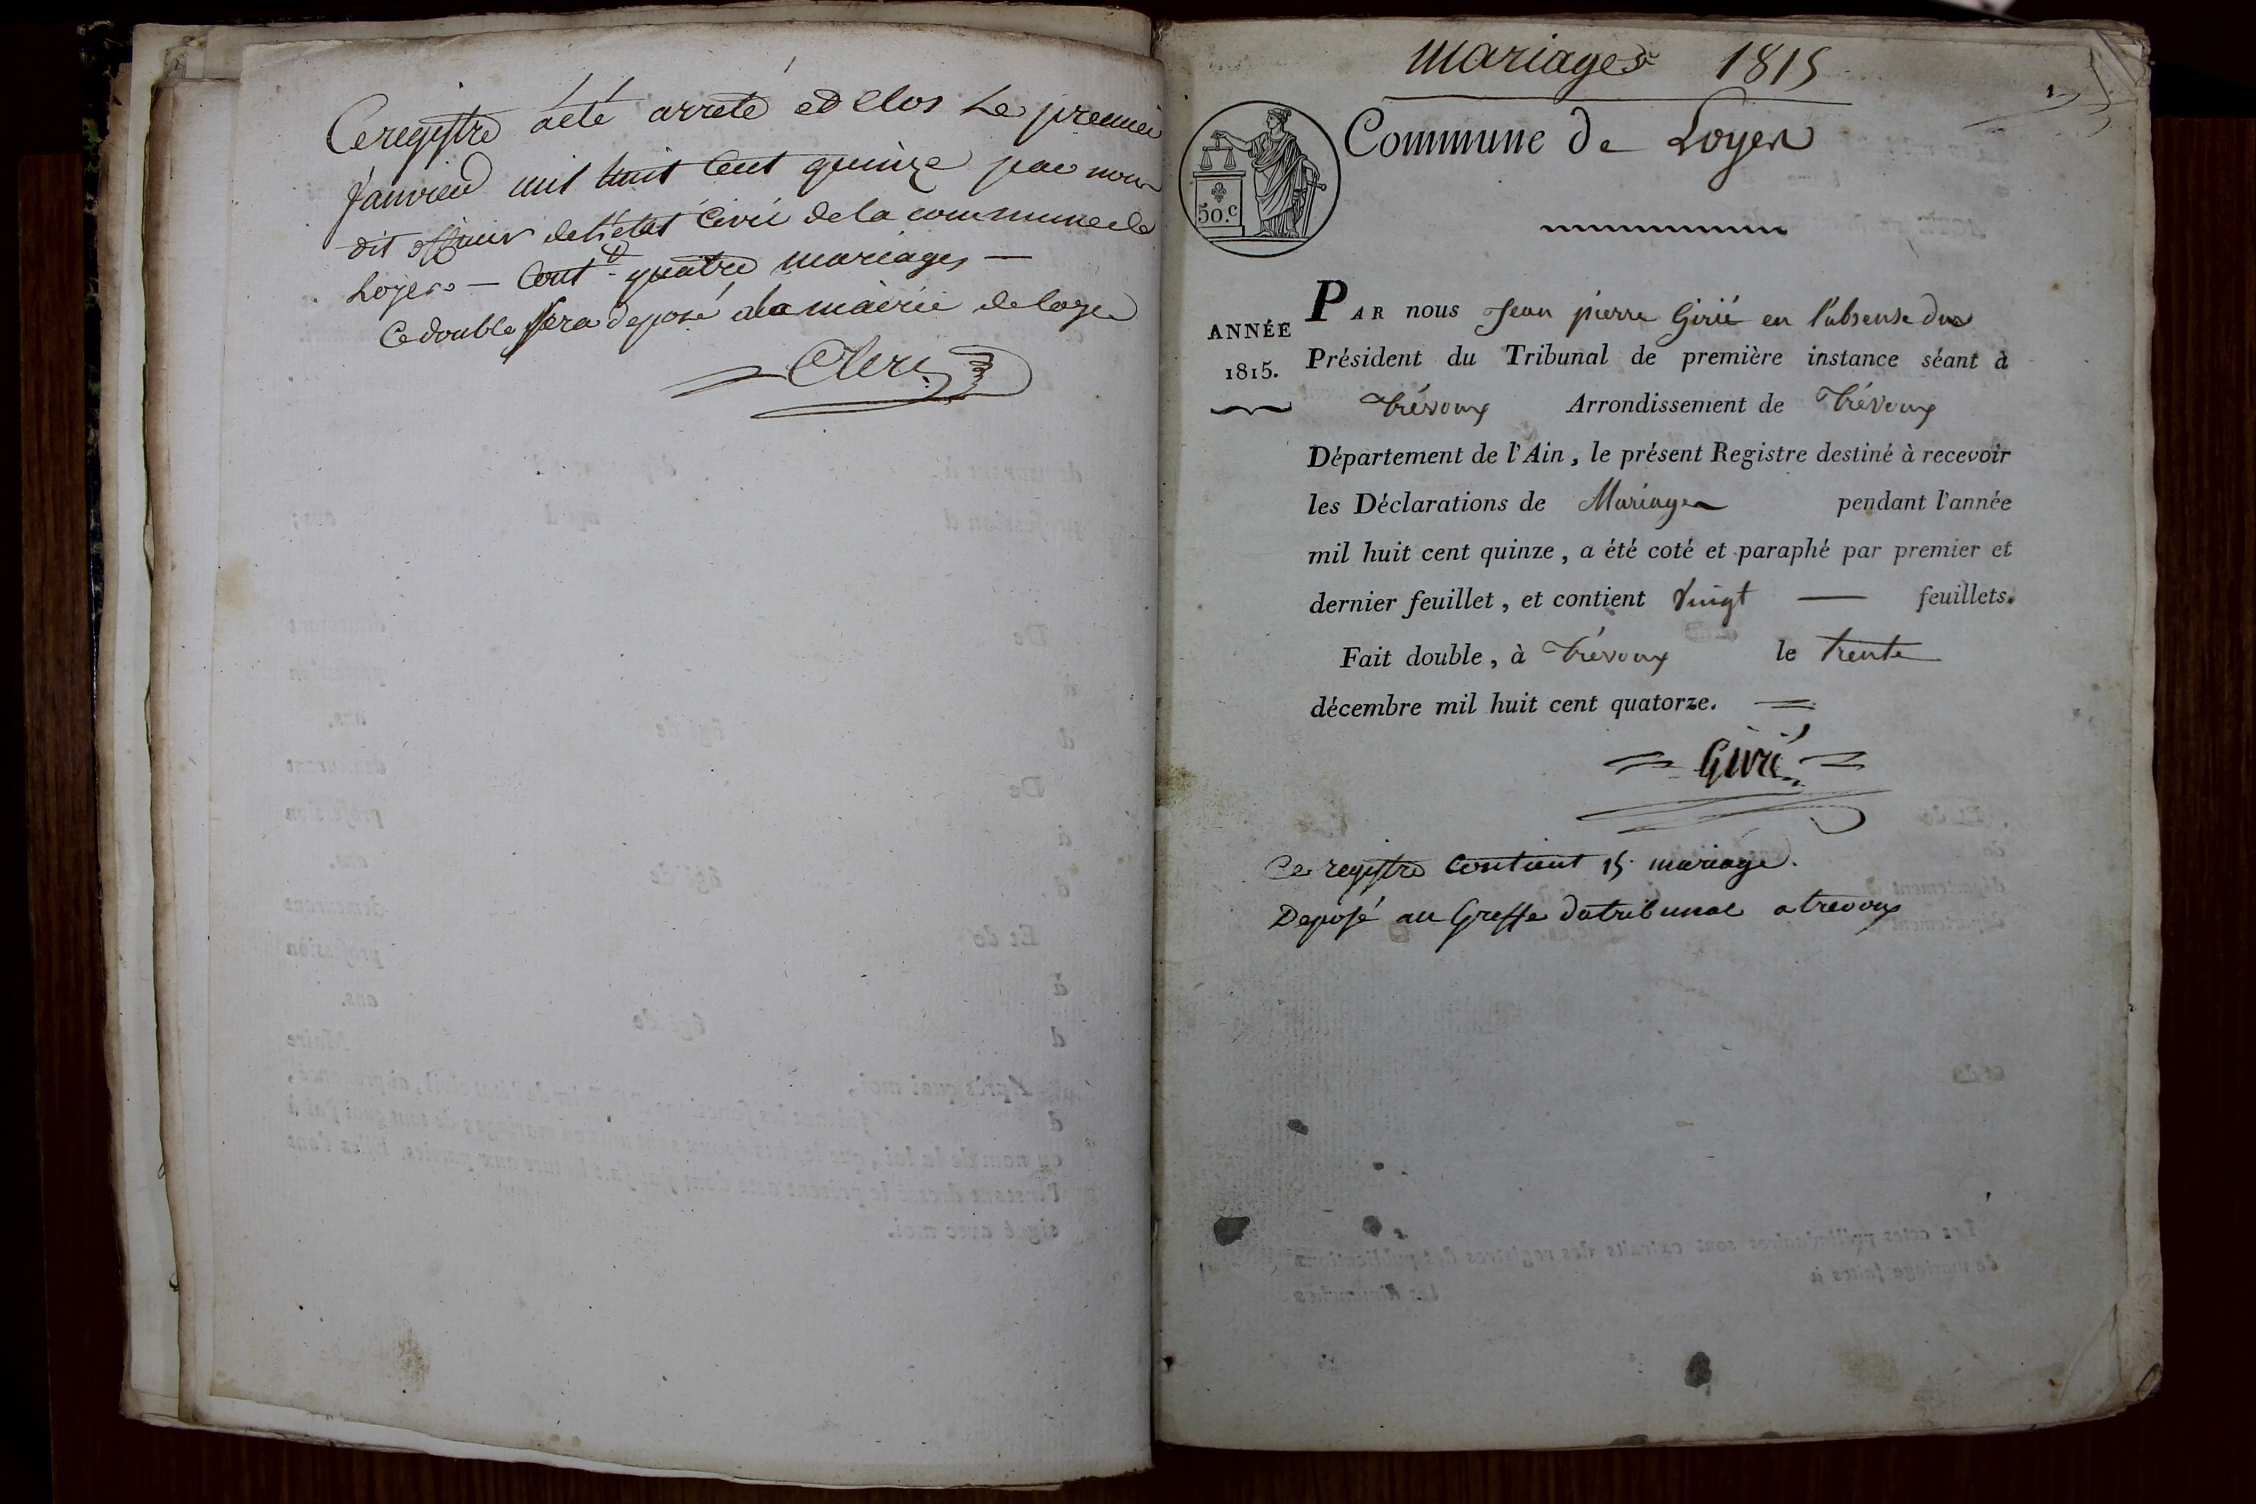 Ce registre a été arreté et Clos Le premier
Janvier mil huit Cent quinze par nous
dit officier de l'état Civil de la commune de
Loyes — Cont.t quatre mariages —
Ce double sera deposé a la mairie de loye
Clerc
mariages 1815
1
Commune de Loyes
50.c
ANNÉE
1815.
PAR nous Jean pierre Girié en l'absense du
Président du Tribunal de première instance séant à
Trévoux Arrondissement de Trévoux
Département de l'Ain, le présent Registre destiné à recevoir
les Déclarations de Mariages pendant l'année
mil huit cent quinze, a été coté et paraphé par premier et
dernier feuillet, et contient Vingt — feuillets.
Fait double, à Trévoux le trente
décembre mil huit cent quatorze.
Girié
Ce registre Contient 15 mariage.
Deposé au Greffe du tribunal a trevoux